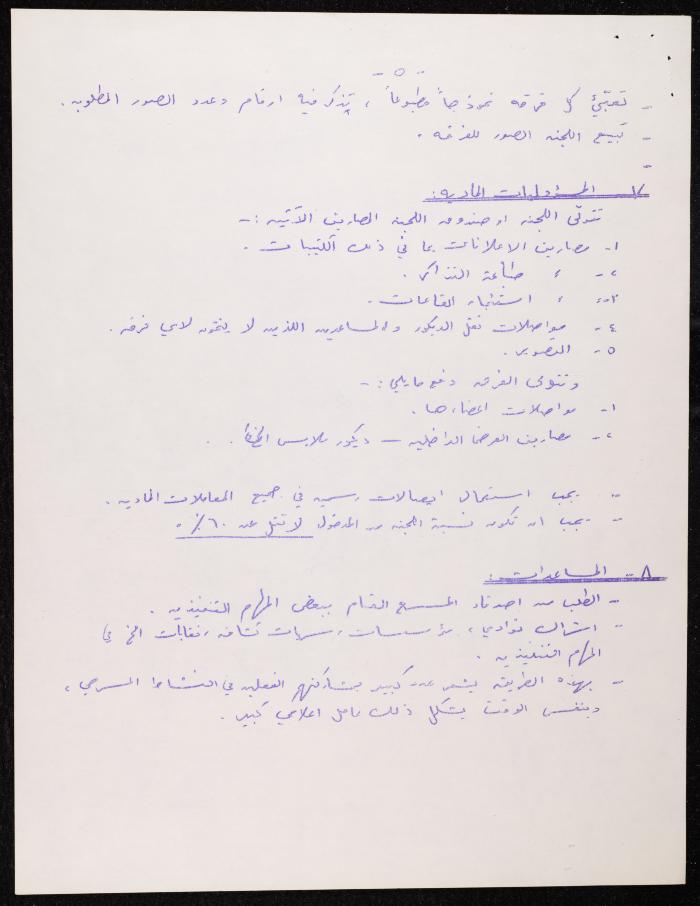 - ٥ -
- تعبّئ كل فرقه نموذجاً مطبوعاً ، تذكر فيه ارقام وعدد الصور المطلوبه .
- تبيع اللجنه الصور للفرقه .
-
٧ - المسؤوليات الماديه :
تتولّى اللجنه او صندوق اللجنه المصاريف الآتيه : -
١- مصاريف الاعلانات بما في ذلك الكتيبات .
٢- ، طباعة التذاكر .
٣- ، استئجار القاعات .
٤- مواصلات نقل الديكور والمساعدين اللذين لا ينتمون لاي فرقه .
٥- التصوير .
وتتولى الفرقه دفع مايلي : -
١- مواصلات اعضاءها .
٢- مصاريف العرض الداخليه - ديكور ملابس الخ .
- يجب استعمال ايصالات رسميه في جميع المعاملات الماديه .
- يجب ان تكون نسبة اللجنه من المدخول لا تقل عن ٦٠٪ .
٨ - المساعدات :
- الطلب من اصدقاء المسرح القيام ببعض المهام التنفيذيه .
- اشراك نوادي ، مؤسسات ، شركات ثقافه ، نقابات الخ في
المهام التنفيذيه .
- بهذه الطريقه يشعر عدد كبير بمشاركتهم الفعليه في النشاط المسرحي ،
وبنفس الوقت يشكل ذلك عامل اعلامي كبير .